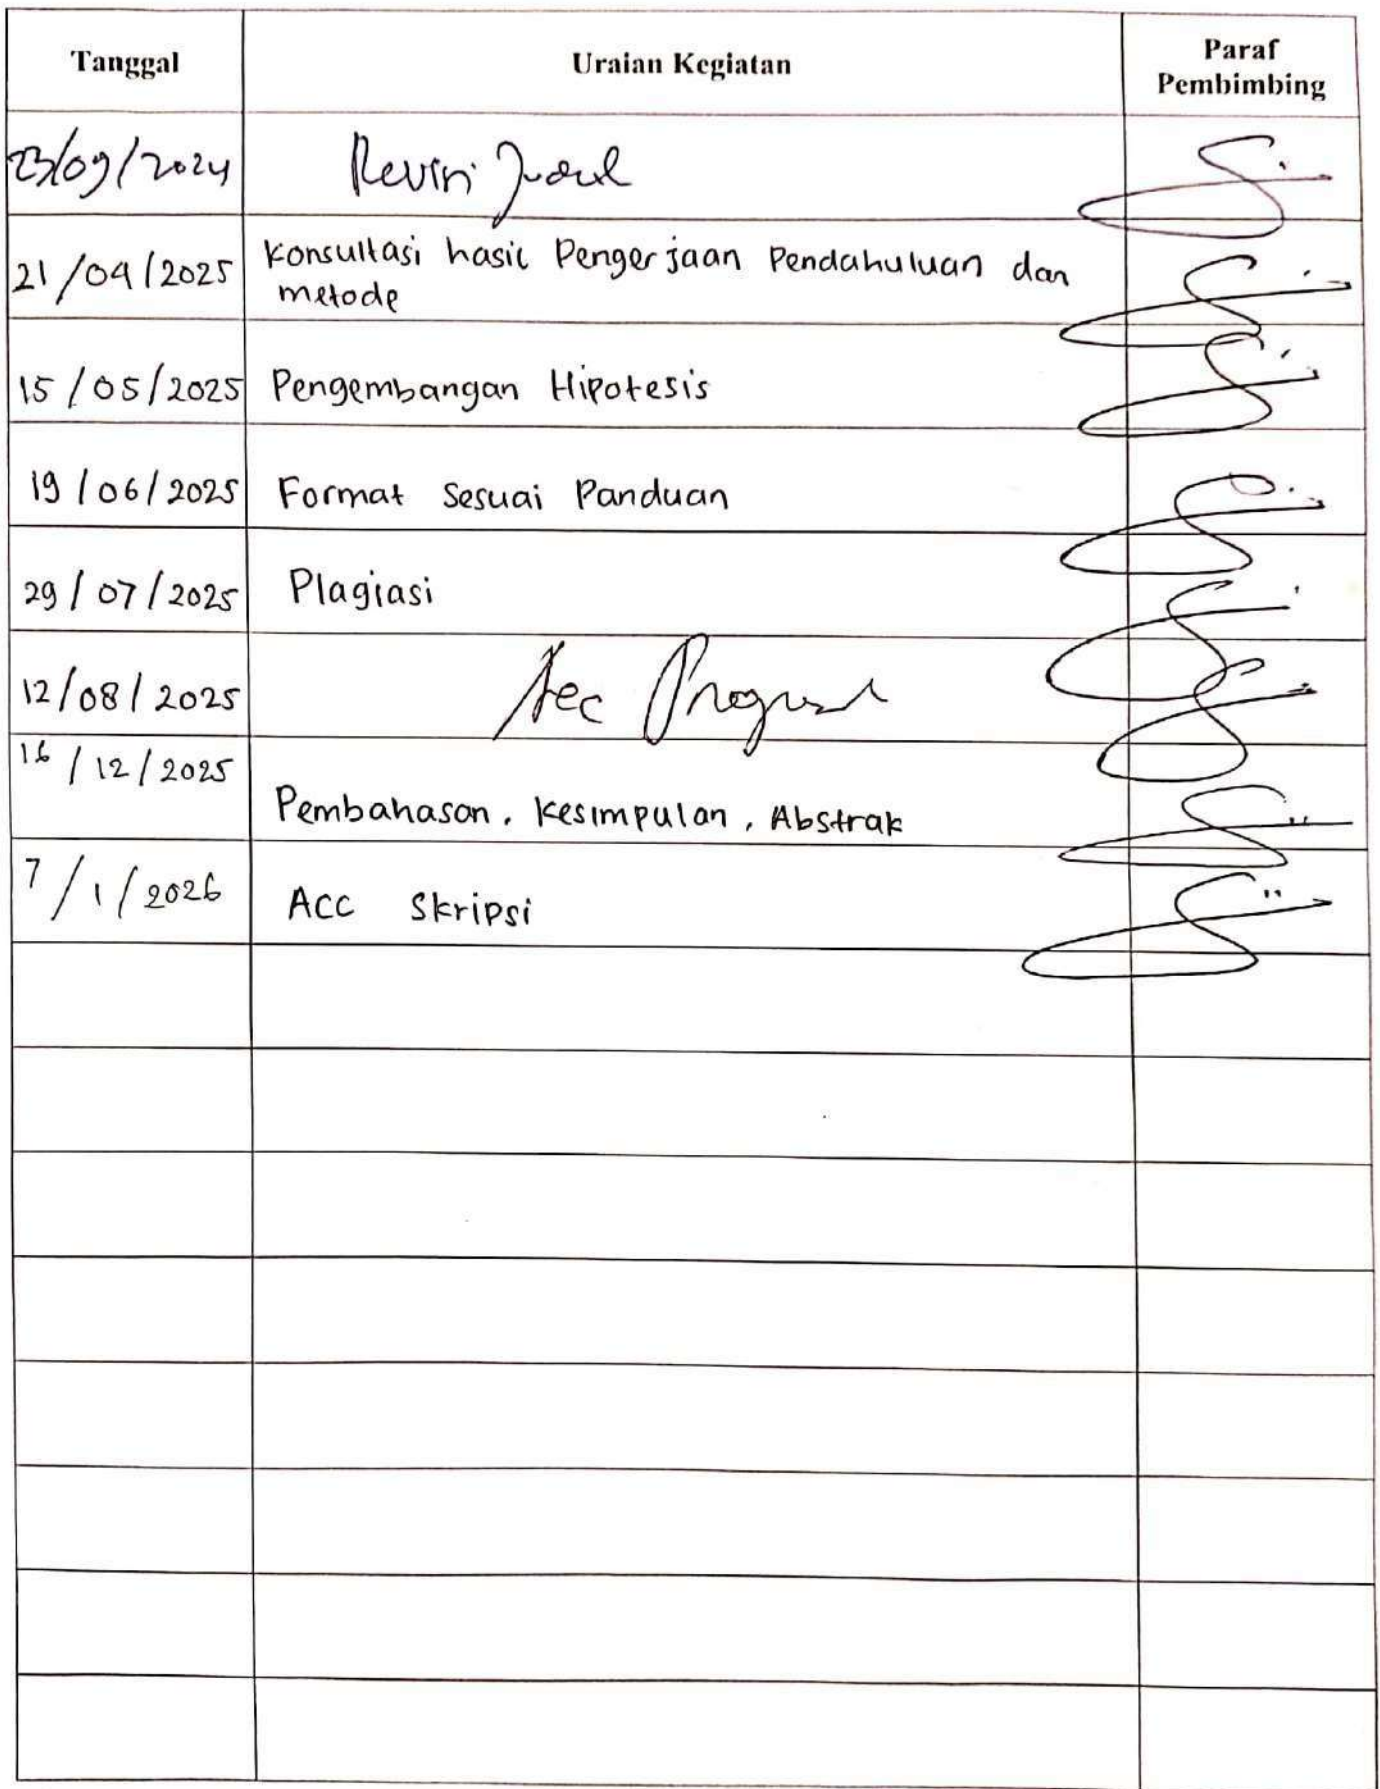 Tanggal
Uraian Kegiatan
Paraf
Pembimbing
23/09/2024 Revisi Judul
21/04/2025 Konsultasi hasil Pengerjaan Pendahuluan dan
metode
15/05/2025 Pengembangan Hipotesis
19/06/2025 Format Sesuai Panduan
29/07/2025 Plagiasi
12/08/2025 Acc
16/12/2025
Pembahasan, Kesimpulan, Abstrak
7/1/2026 ACC Skripsi